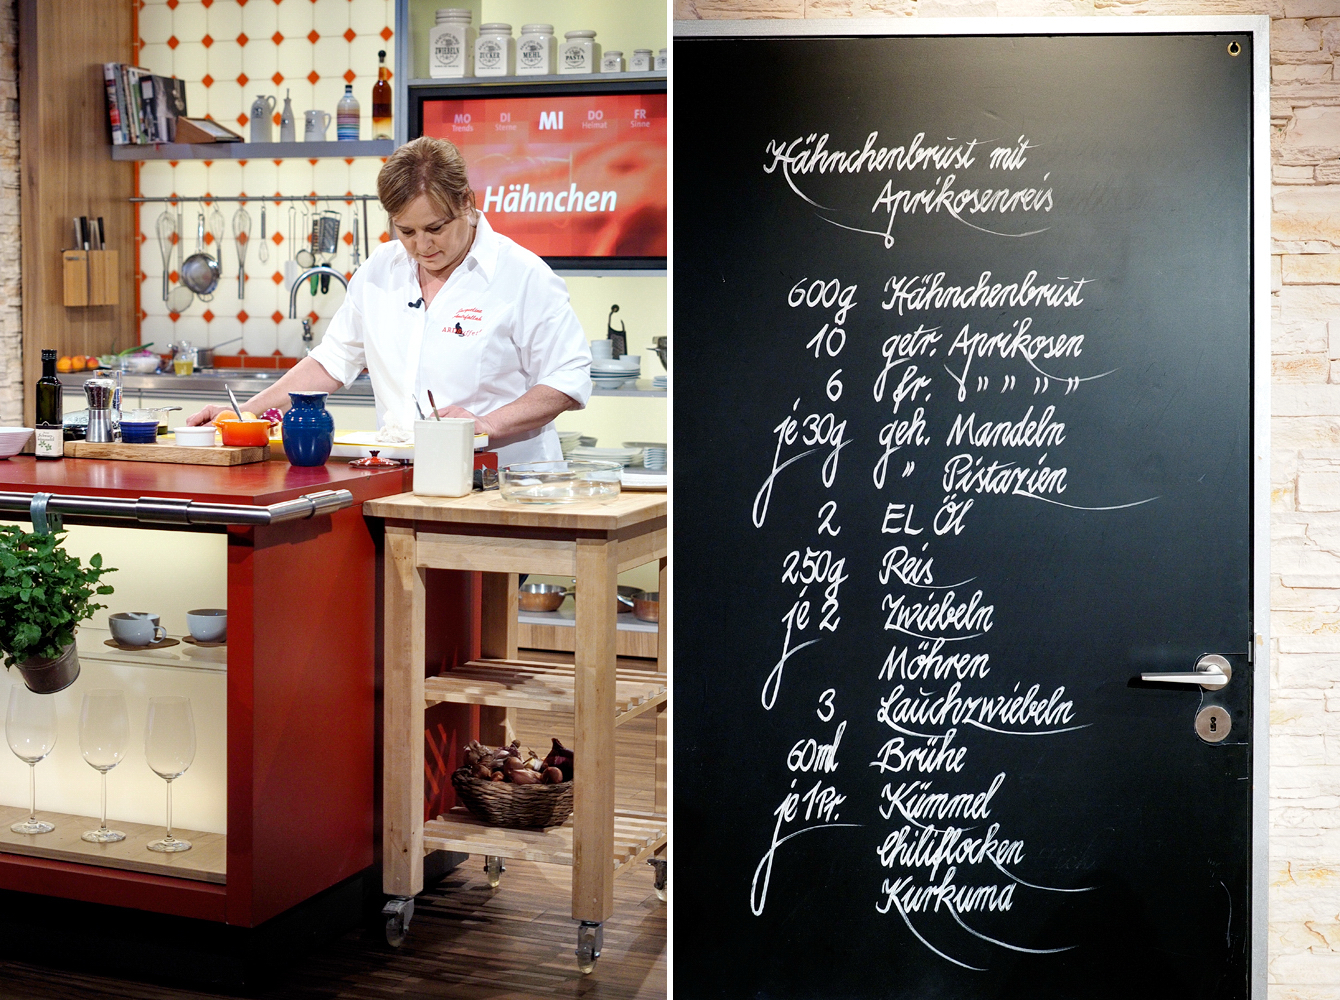 ZWIEBELN
ZUCKER
MEHL
PASTA
MO DI MI DO FR
Trends Sterne Heimat Sinne
Hähnchen
Hähnchenbrust mit
Aprikosenreis
600g Hähnchenbrust
10 getr. Aprikosen
6 fr. " " " "
je 30g geh. Mandeln
" Pistazien
2 EL Öl
250g Reis
je 2 Zwiebeln
Möhren
3 Lauchzwiebeln
60ml Brühe
je 1 Pr. Kümmel
Chiliflocken
Kurkuma